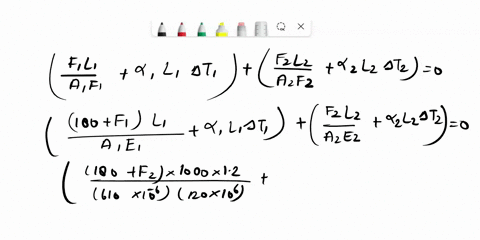 (F1L1/A1F1 + α1 L1 ΔT1) + (F2L2/A2F2 + α2L2 ΔT2) = 0
((100 + F1) L1/A1E1 + α1 L1 ΔT1) + (F2L2/A2E2 + α2L2 ΔT2) = 0
((100 + F2) × 1000 × 1.2/(610 × 10^-6) (120 × 10^6) +